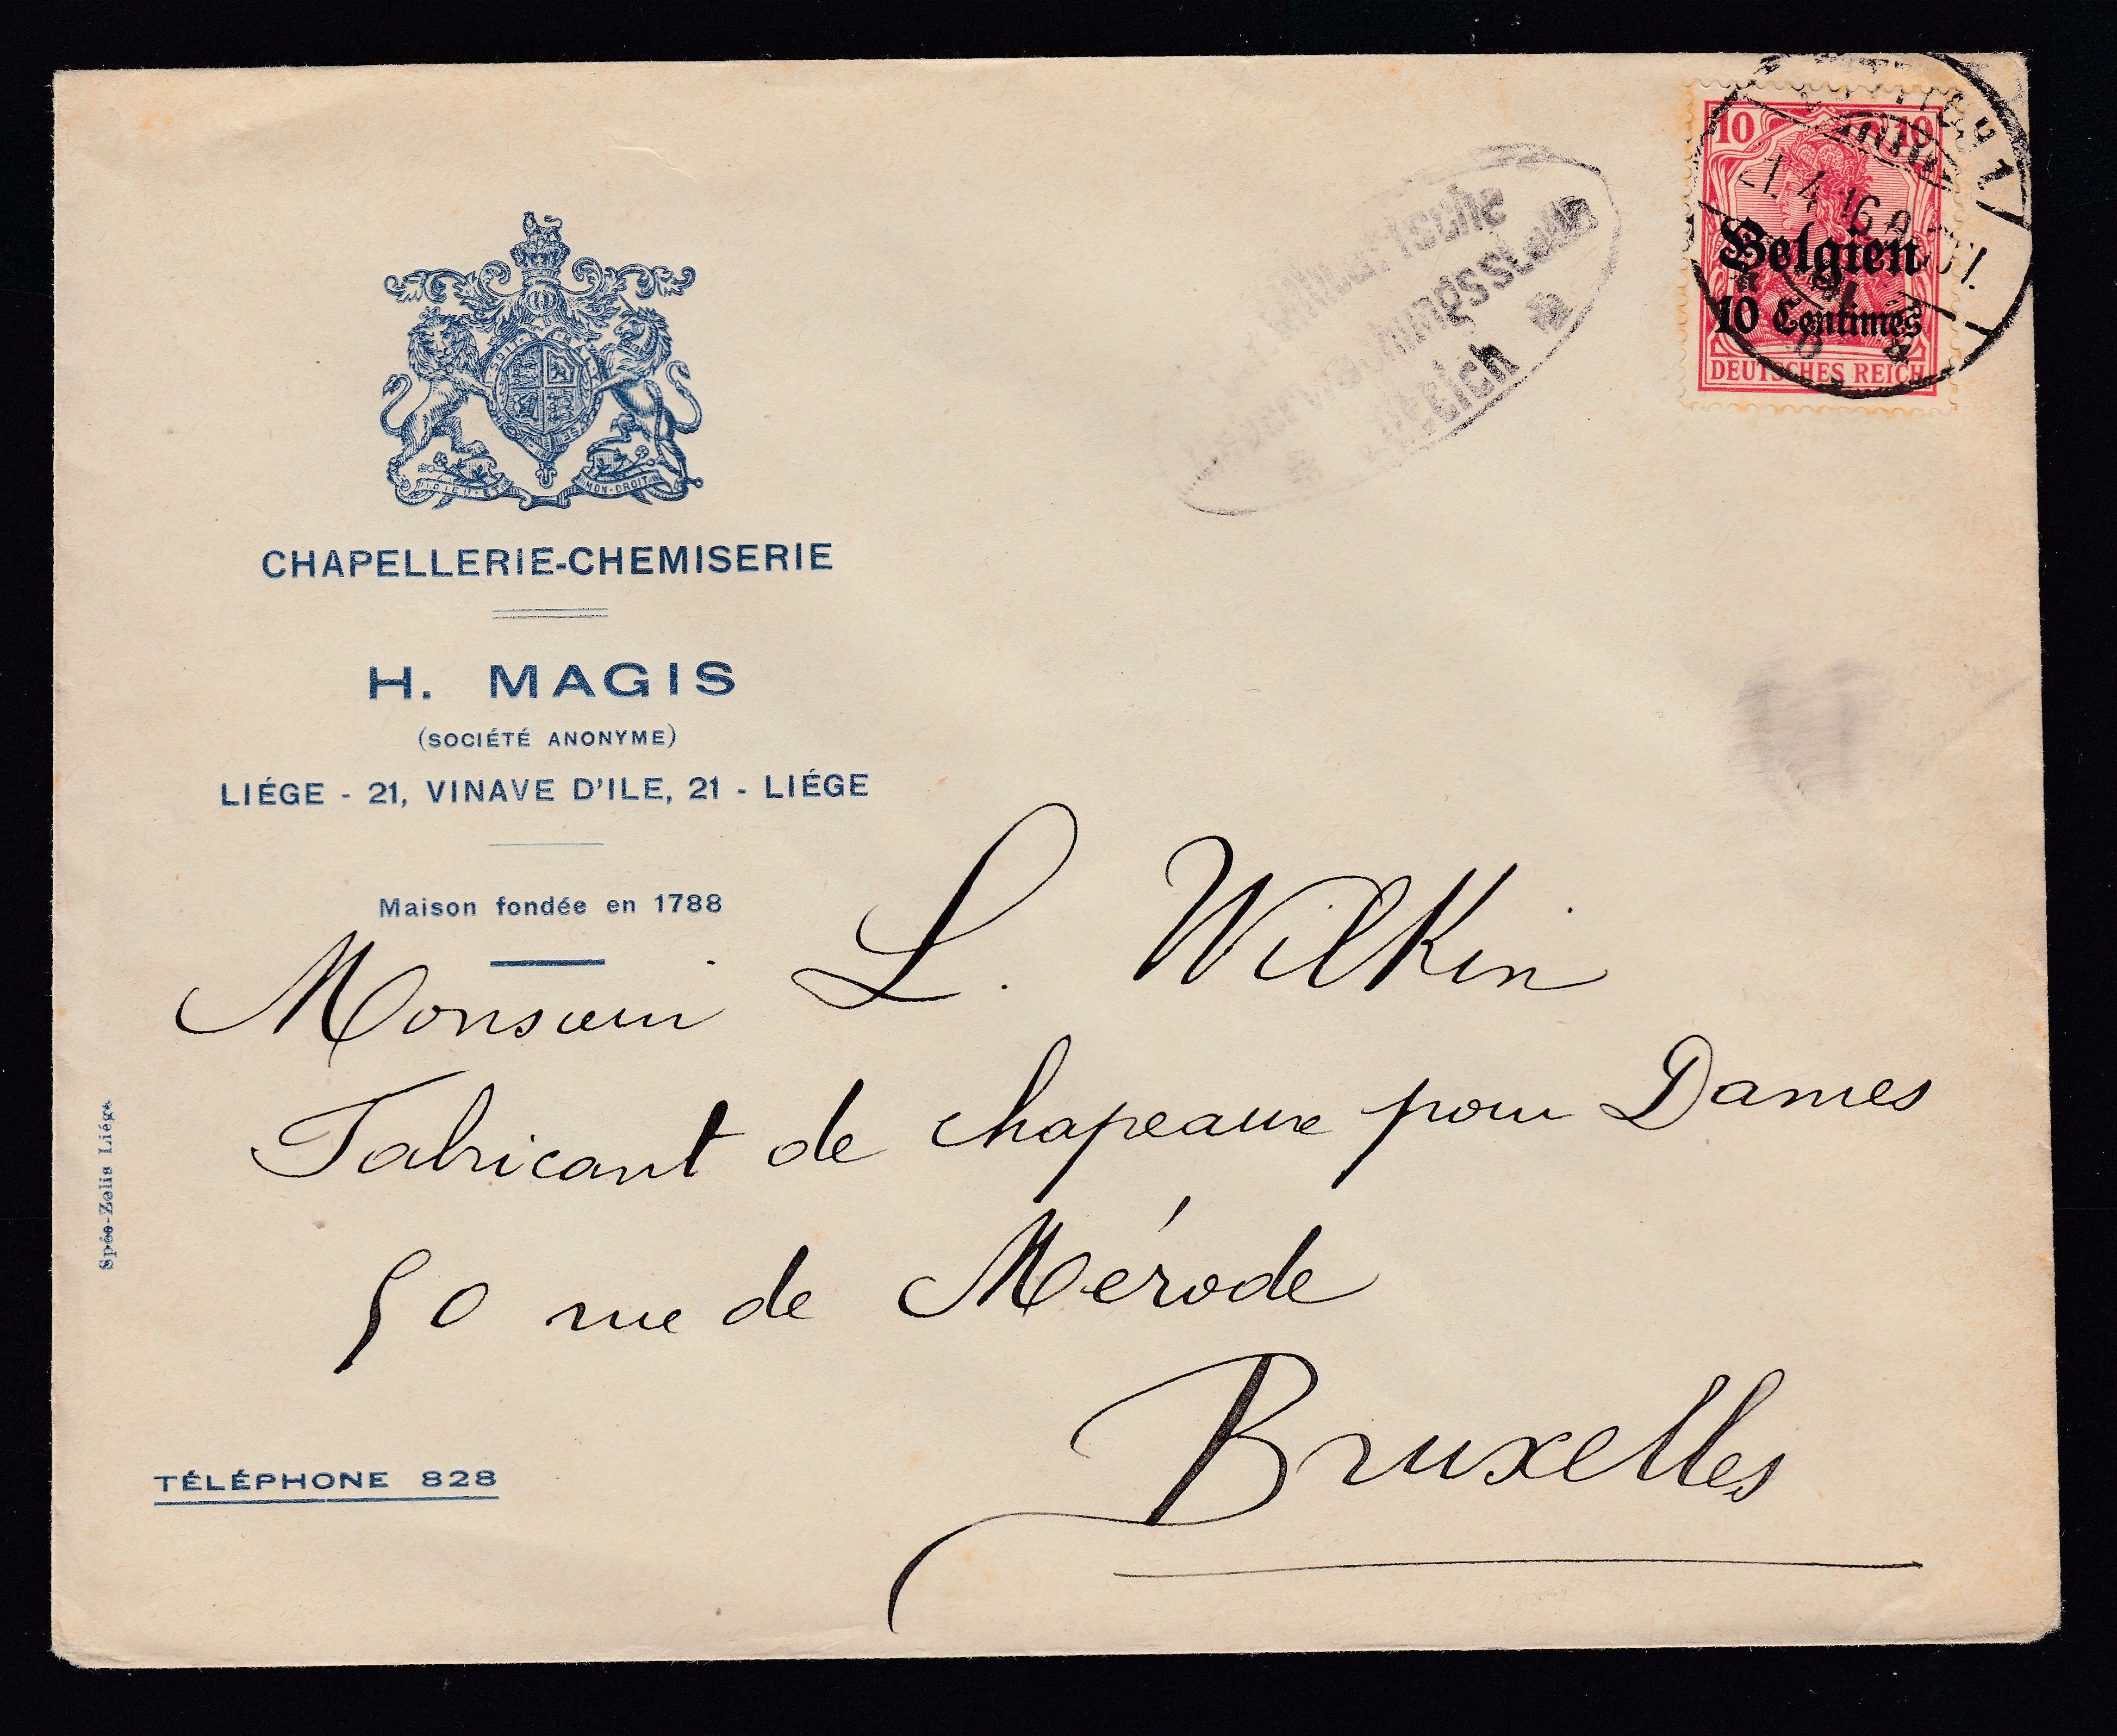 DIEU·ET MON·DROIT
CHAPELLERIE-CHEMISERIE
H. MAGIS
(SOCIÉTÉ ANONYME)
LIÉGE - 21, VINAVE D'ILE, 21 - LIÉGE
Maison fondée en 1788
10 10
21. 4. 16
Belgien
10 Centimes
DEUTSCHES REICH
Militärische
Überwachungsstelle
Monsieur L. Wilkin
Fabricant de chapeaux pour Dames
50 rue de Mérode
Bruxelles
TÉLÉPHONE 828
Spée-Zelis Liége